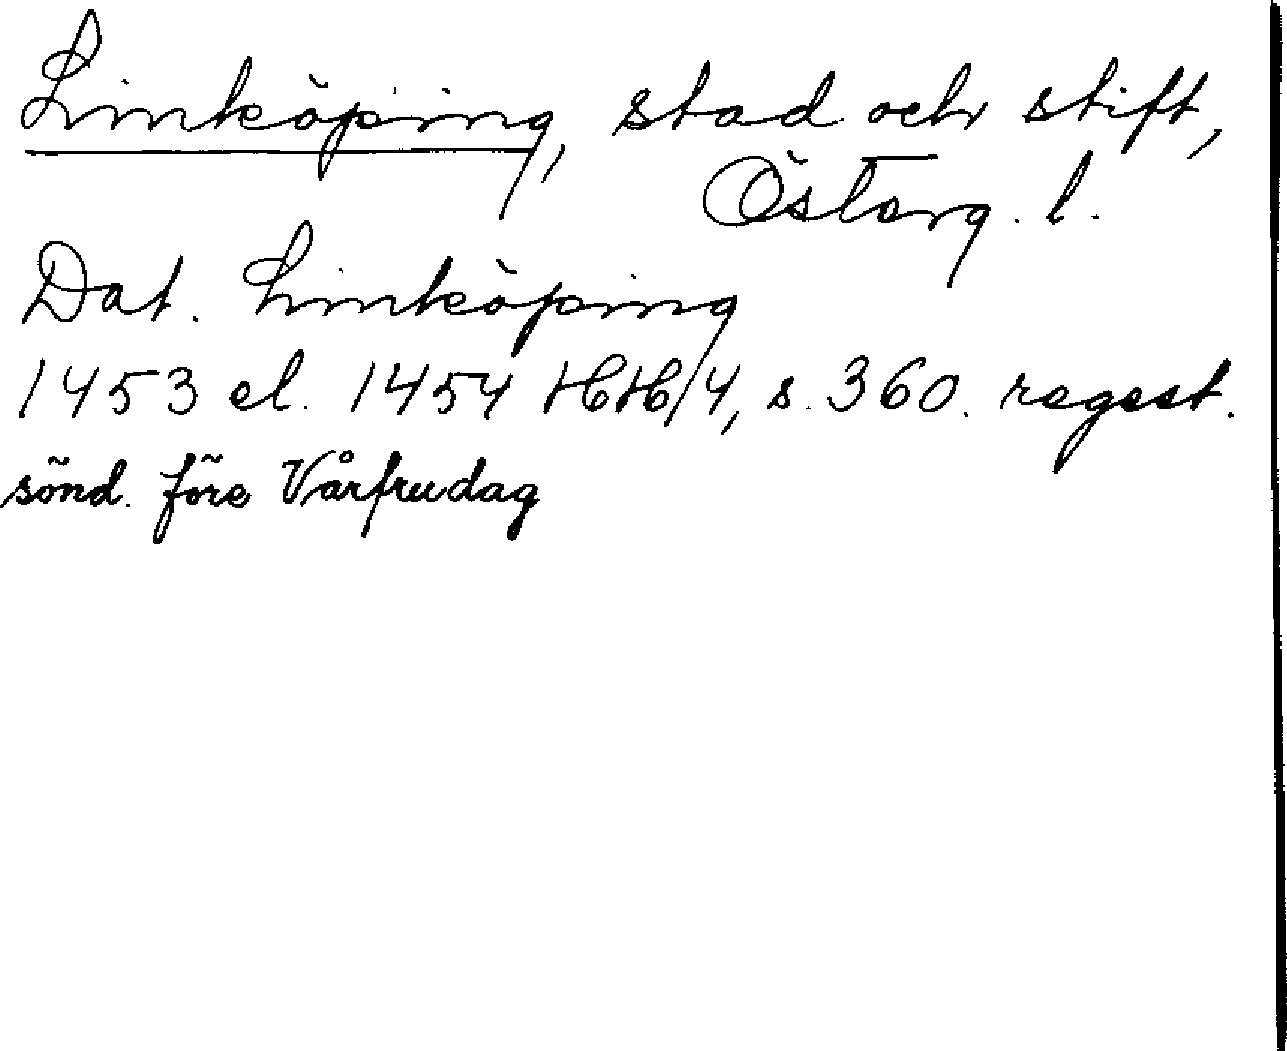 Linköping, stad och stift,
Österg. l.
Dat. Linköping
1453 el. 1454 HH/4, s. 360. regest.
sönd. före Vårfrudag